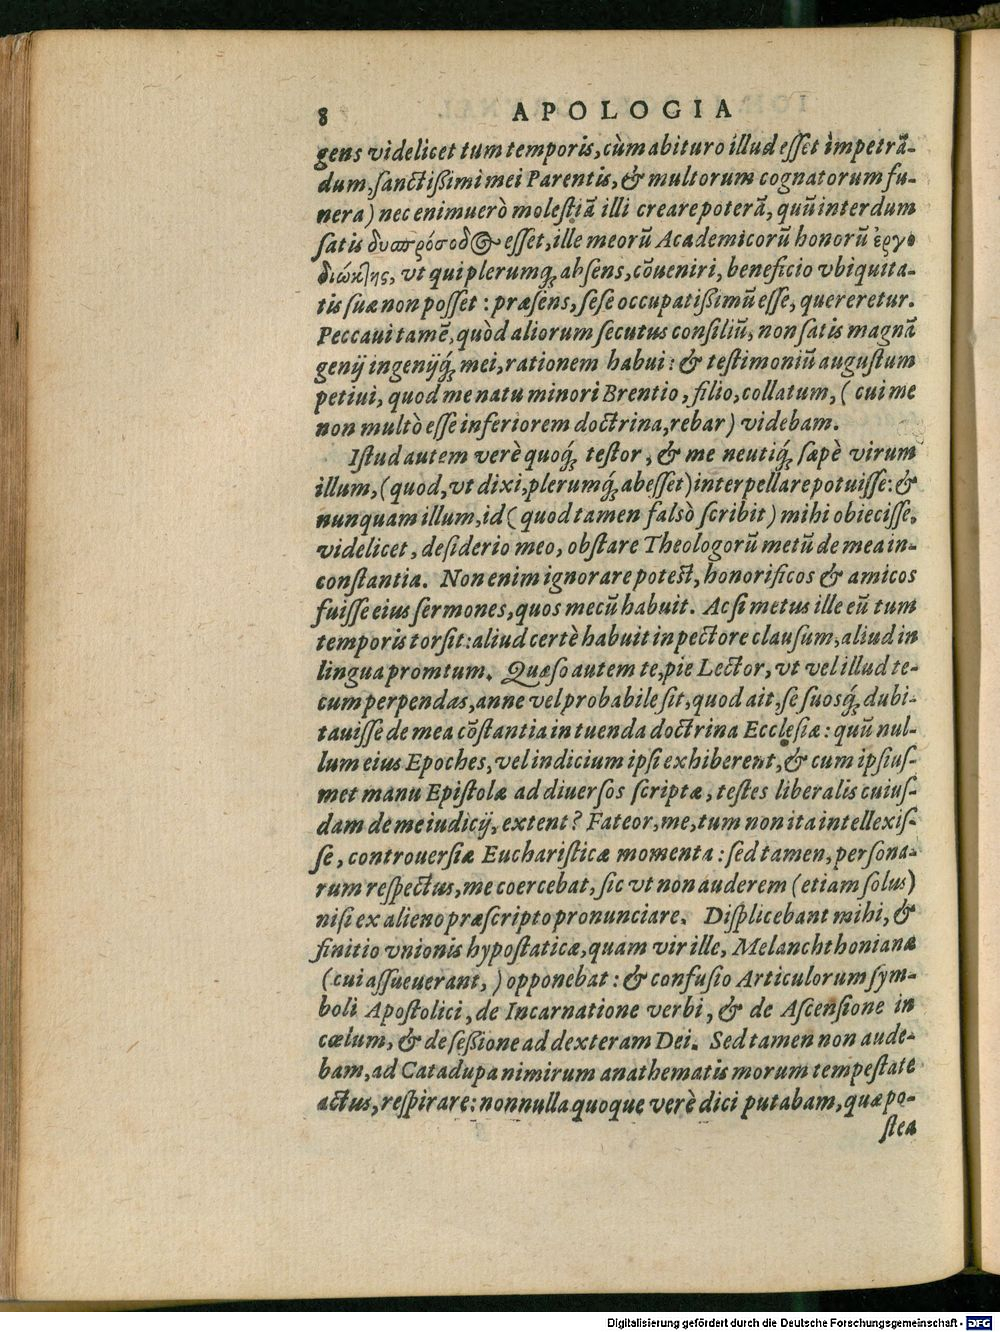 8 APOLOGIA
gens videlicet tum temporis, cùm abituro illud esset impetrã-
dum, sanctißimi mei Parentis, & multorum cognatorum fu-
nera) nec enimuerò molestiã illi creare poterã, quũ interdum
satis δυσπρόσοδος esset, ille meorũ Academicorũ honorũ ἐργο
διώκτης, vt qui plerumq́ absens, cõueniri, beneficio vbiquita-
tis suæ non posset : præsens, sese occupatißimũ esse, quereretur.
Peccaui tamẽ, quòd aliorum secutus consiliũ, non satis magnã
genij ingenijq́ mei, rationem habui : & testimoniũ augustum
petiui, quod me natu minori Brentio, filio, collatum, ( cui me
non multò esse inferiorem doctrina, rebar ) videbam.
Istud autem verè quoq́ testor, & me neutiq́ sæpè virum
illum, (quod, vt dixi, plerumq́ abesset) interpellare potuisse: &
nunquam illum, id ( quod tamen falsò scribit ) mihi obiecisse,
videlicet, desiderio meo, obstare Theologorũ metũ de mea in-
constantia. Non enim ignorare potest, honorificos & amicos
fuisse eius sermones, quos mecũ habuit. Ac si metus ille eũ tum
temporis torsit: aliud certè habuit in pectore clausum, aliud in
lingua promtum. Quæso autem te, pie Lector, vt vel illud te-
cum perpendas, anne vel probabile sit, quod ait, se suosq́ dubi-
tauisse de mea cõstantia in tuenda doctrina Ecclesiæ: quũ nul-
lum eius Epoches, vel indicium ipsi exhiberent, & cum ipsius-
met manu Epistolæ ad diuersos scriptæ, testes liberalis cuius-
dam de me iudicij, extent? Fateor, me, tum non ita intellexis-
se, controuersiæ Eucharisticæ momenta : sed tamen, persona-
rum respectus, me coercebat, sic vt non auderem (etiam solus)
nisi ex alieno præscripto pronunciare. Displicebant mihi, &
finitio vnionis hypostaticæ, quam vir ille, Melanchthonianæ
(cui assueuerant, ) opponebat : & confusio Articulorum sym-
boli Apostolici, de Incarnatione verbi, & de Ascensione in
cœlum, & de seßione ad dexteram Dei. Sed tamen non aude-
bam, ad Catadupa nimirum anathematismorum tempestate
actus, respirare: nonnulla quoque verè dici putabam, quæ po-
stea
Digitalisierung gefördert durch die Deutsche Forschungsgemeinschaft - DFG